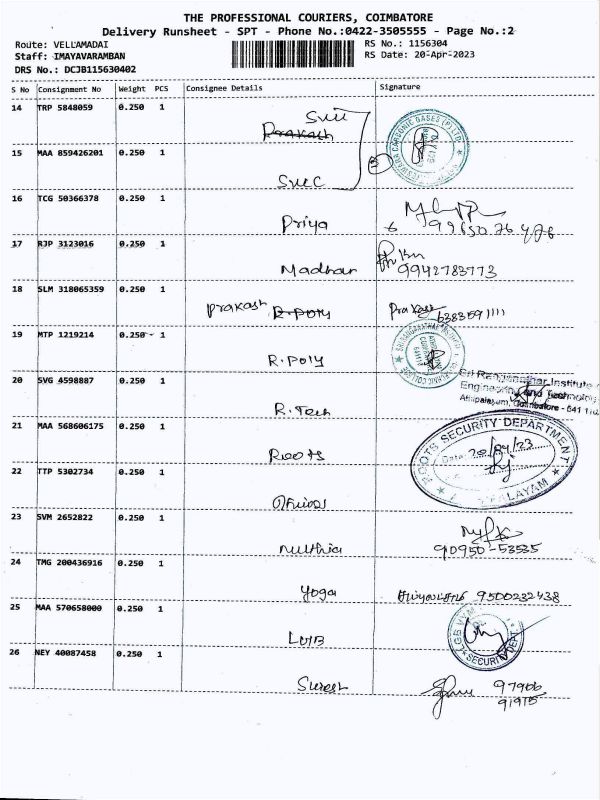 THE PROFESSIONAL COURIERS, COIMBATORE
Delivery Runsheet - SPT - Phone No.:0422-3505555 - Page No.:2
Route: VELLAMADAI RS No.: 1156304
Staff: IMAYAVARAMBAN RS Date: 20-Apr-2023
DRS No.: DCJB115630402
S No Consignment No Weight PCS Consignee Details Signature
14 TRP 5848059 0.250 1
Prakash
15 MAA 859426201 0.250 1
SVCC
16 TCG 50366378 0.250 1
Priya
17 RJP 3123016 0.250 1
Madhar 9942783773
18 SLM 318065359 0.250 1
Prakash R.Poly Prakash
19 MTP 1219214 0.250 1
R.Poly
20 SVG 4598887 0.250 1
Sri Ranganathar Institute
Engineering and Technology
Athipalayam, Coimbatore - 641 110
R.Tech
21 MAA 568606175 0.250 1
ROOTS SECURITY DEPARTMENT
Date: 20/04/23
Roots
22 TTP 5302734 0.250 1
23 SVM 2652822 0.250 1
90950-53535
24 TMG 200436916 0.250 1
Yoga 9500232438
25 MAA 570658000 0.250 1
SECURITY DEPT
26 NEY 40087458 0.250 1
Suresh 97906
91915